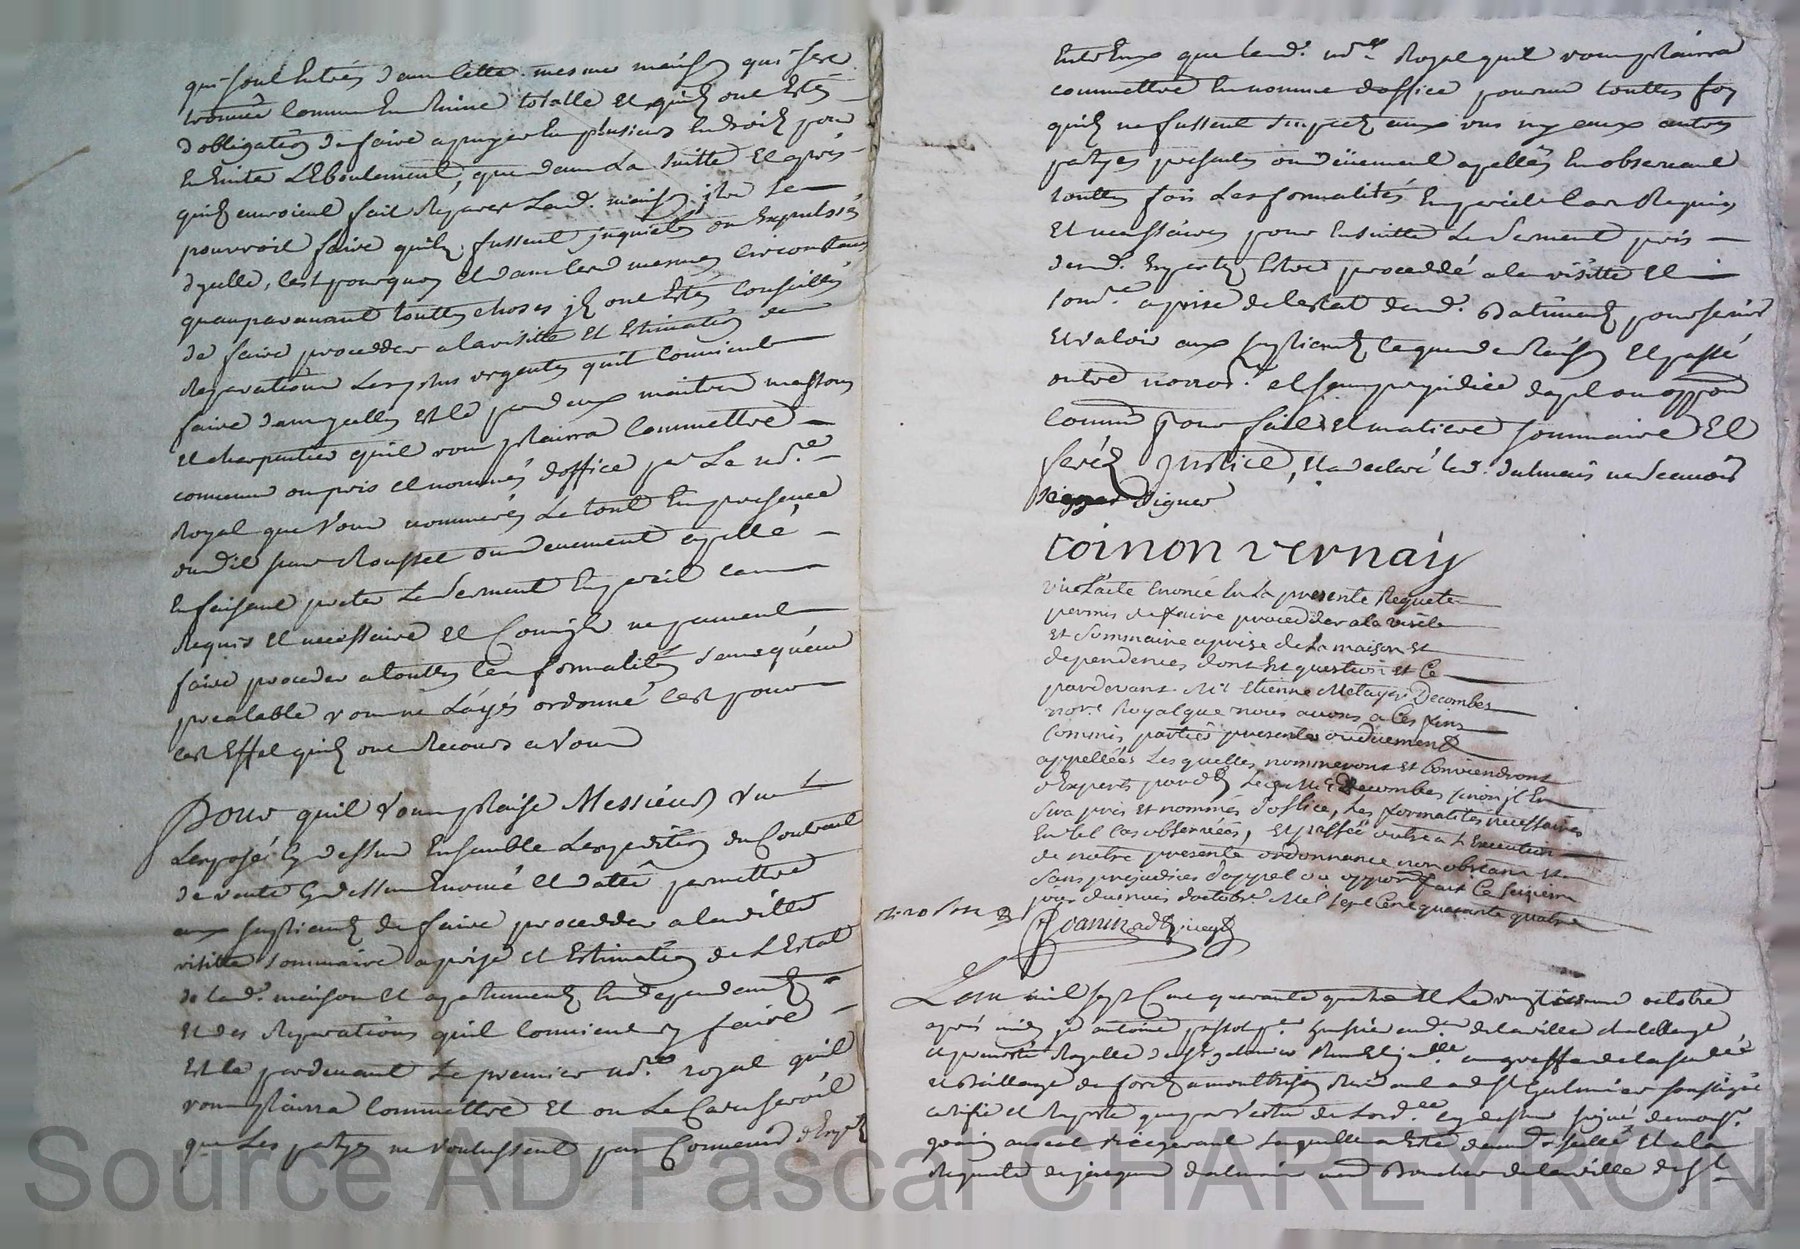 qui sont Entrés dans cette mesme maison qui sere
trouvée comme En Ruine totalle Et quils ont Estés
d'obligation de faire apuyer En plusieurs Endroits pour
En Eviter L'Eboulement, que dans La suitte Et apres
quils auroient fait Reparer Lad. maison il se
pourroit faire quils fussent inquietés ou Expulsés
d'ycelle, c'est pourquoy Et dans les mesmes circonstances
qu'auparavant touttes choses ils ont Estés conseillés
de faire proceder a la visitte Et Estimation des
Reparations Les plus urgentes qu'il convient
faire dans ycelles Et ce par deux maitres massons
Et charpentier qu'il vous plairra Commettre
convenus ou pris et nommés d'office par Le no.re
Royal que Vous nommerés Le tout En presence
dud. sieur Rousset ou duement apellé
En faisant preter Le serment En pareil cas
Requis Et necessaire Et Comme ils ne peuvent
faire proceder a touttes ces formalités sans qu'au
prealable vous ne L'ayés ordonné C'est pour
cet Effet quils ont Recours a Vous
Pour quil Vous plaise Messieurs vu
L'exposé cy dessus Ensemble L'expedition du Contract
de vente cy dessus Enoncé Et datté permettre
aux supliants de faire proceder a la ditte
visitte sommaire aprise et Estimation de L'Estat
de lad. maison Et apartements En dependants
Et des Reparations quil convient y faire
Et ce pardevant Le premier no.re royal quil
vous plairra Commettre Et ou Le Cas seroit
que Les partyes ne voulussent pas Convenir d'Experts
Entr'Eux que led. no.re Royal quil vous plairra
commettre En nomme d'office pourvu touttes fois
quils ne fussent suspects aux uns ny aux autres
partyes presentes ou düement apellés En observant
touttes fois Les formalités En pareil cas Requises
Et necessaires pour Ensuitte Le serment pris
desd. Experts Estre proceddé a la visitte Et
som.re aprise de l'estat desd. Batiments pour servir
Et valoir aux supliants ce que de Raison Et passé
outre nonobs.t et sans prejudice d'apel ou oppon
comme pour fait Et matiere sommaire Et
ferés Justice, Et a declaré led. dalmais ne scavoir
signer
toinon vernay
vu L'acte Enoncé En La presente Requete
permis de faire proceder a la visite
et sommaire aprise de La maison et
dependences dont Est question et Ce
pardevant M.e Etienne Metayer Decombes
no.re Royal que nous avons a Ces fins
Commis parties presentes ou düement
appellées Lesquelles nommeront et Conviendront
d'Experts pard. Led. M.e Decombes sinon il En
sera pris et nommés d'office, Les formalités necessaires
En tel Cas observées, et passée outre a L'Execution
de notre presente ordonnance non obstant et
sans prejudices d'appel ou oppon fait Ce seizieme
jour du mois d'octobre Mil Sept Cent quarante quatre
L'an mil sept Cens quarante quatre Et Le vingtieme octobre
apres midy je antoine huissier de la ville chatellenye
Et prevosté Royalle de St galmier au greffe de la senée
et Baillage de forest a montbrison Residant aud St Galmier soussigné
certifie et Raporte que par vertu de L'ord.ce cy dessus signé de mons.r
Joanin
Requete de jacques dalmais md Boucher de la ville de St
Source AD Pascal CHAREYRON